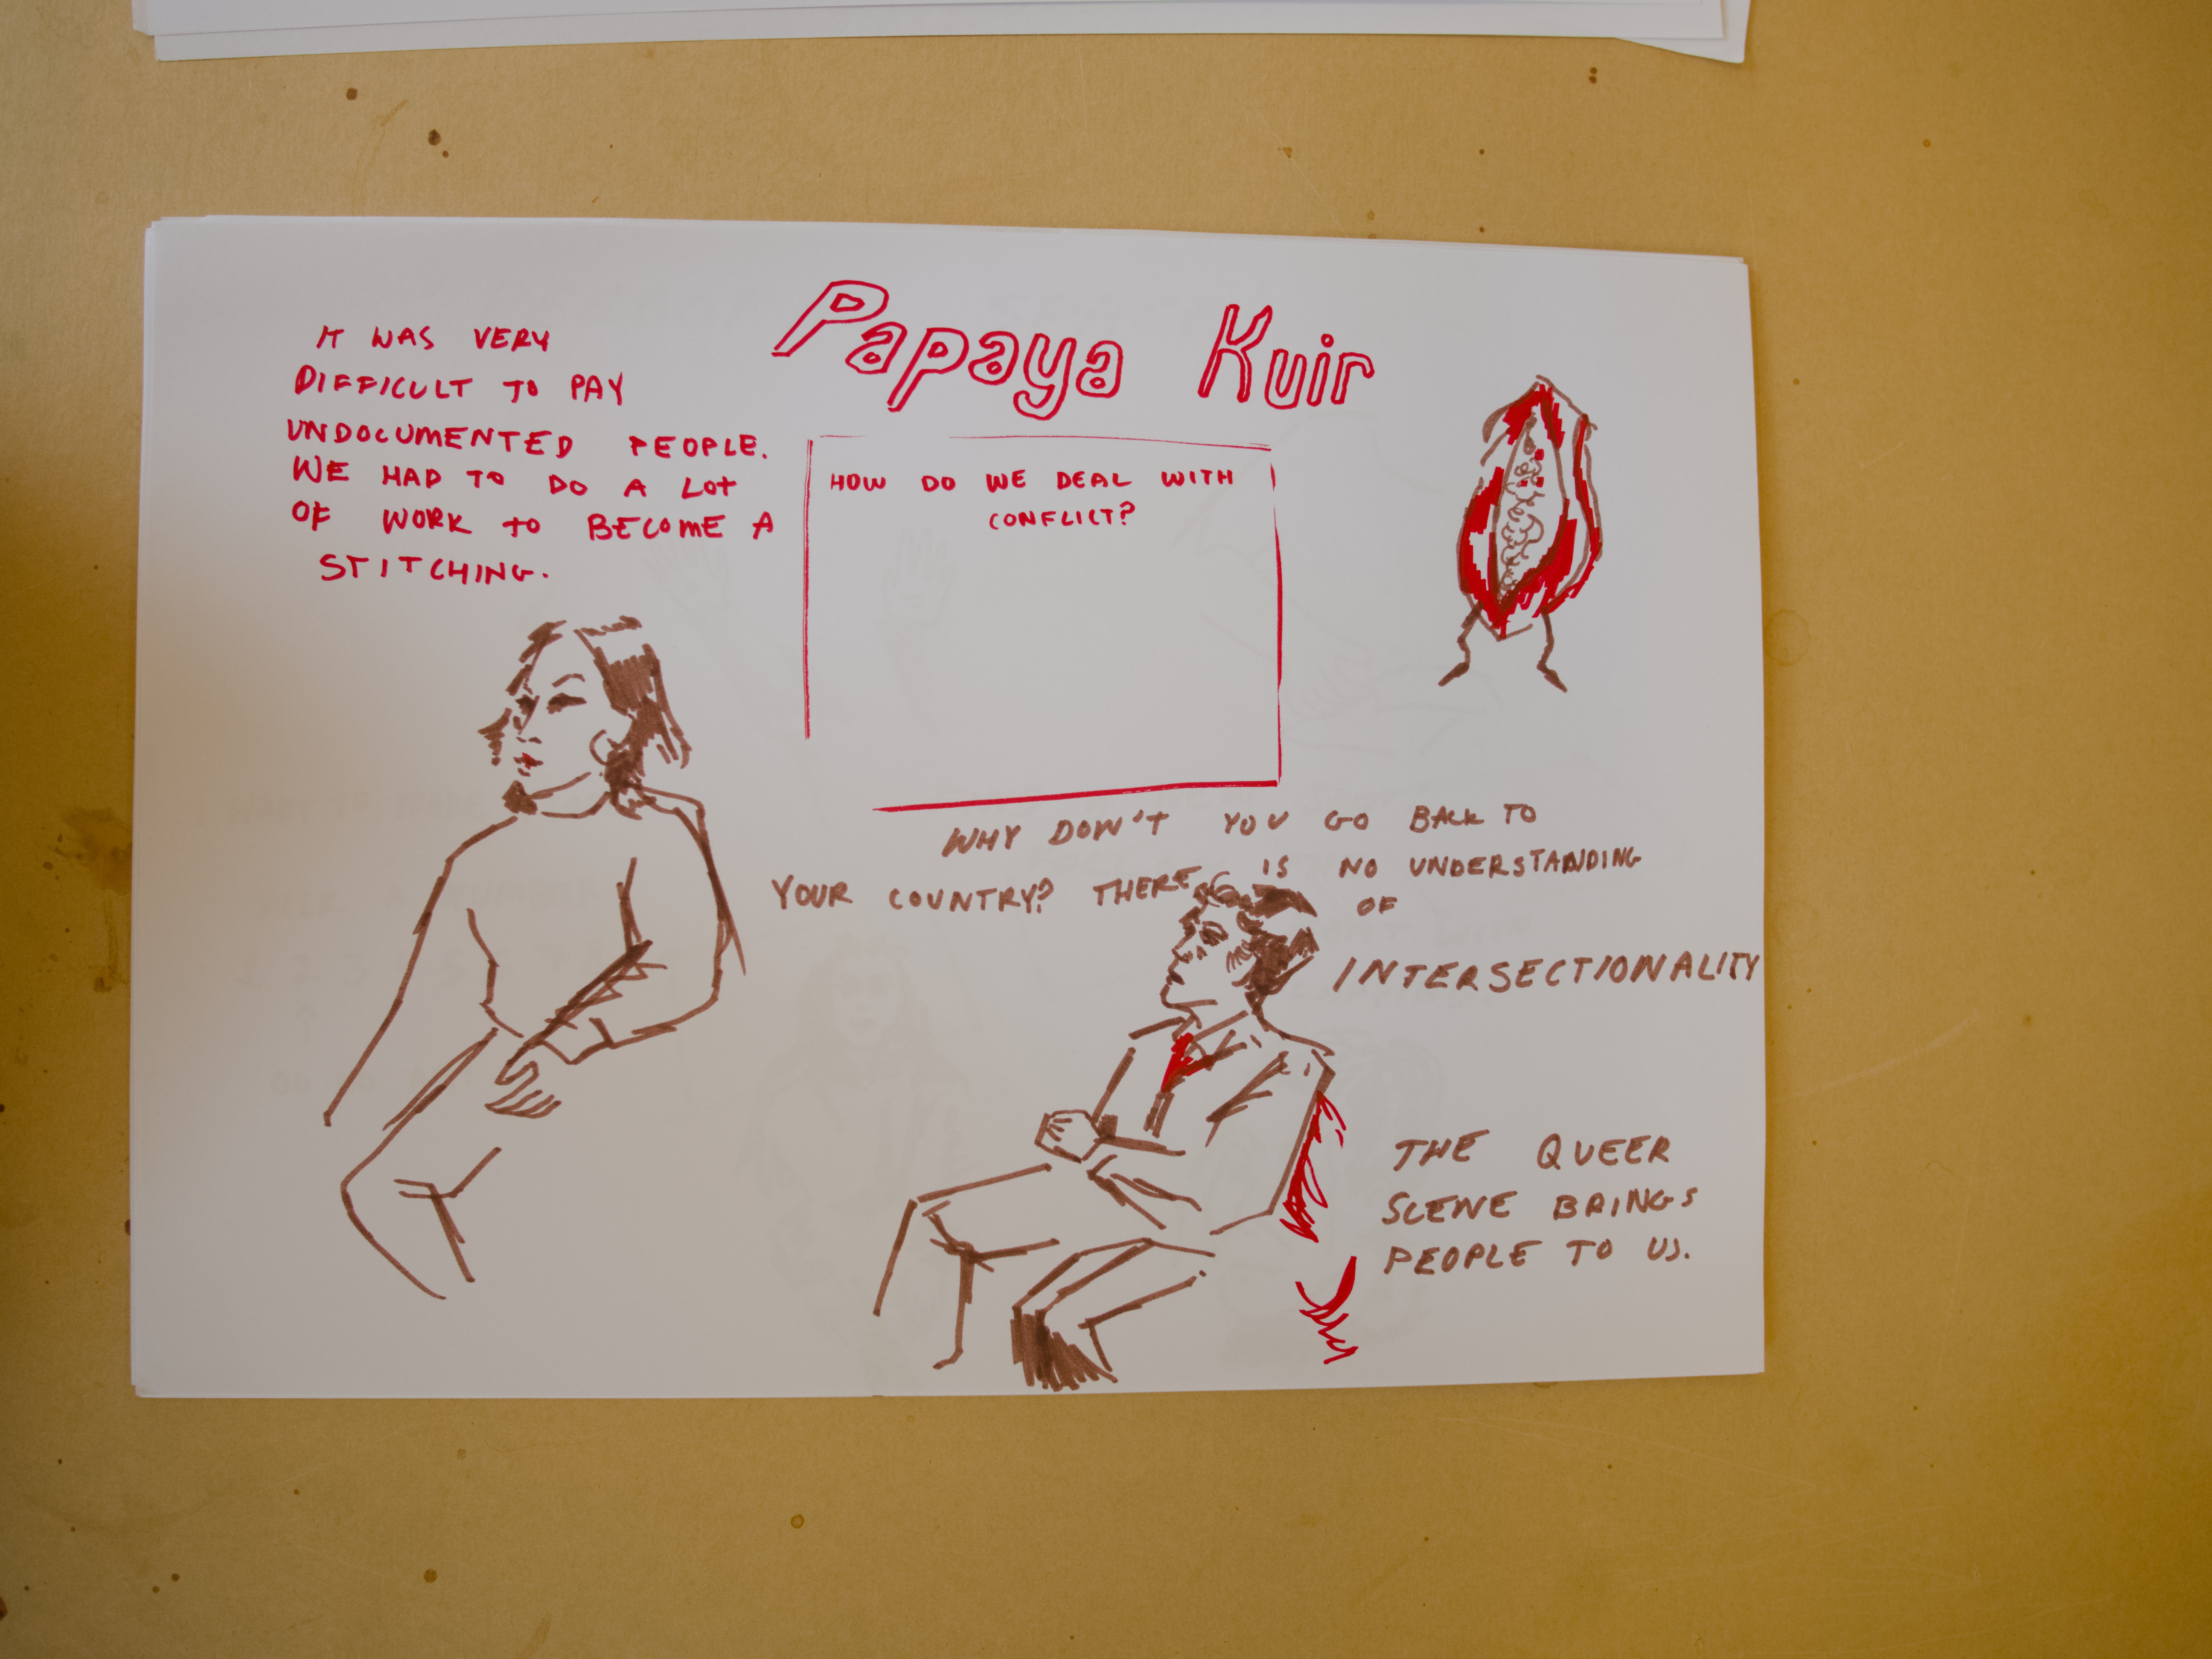 Papaya Kuir
IT WAS VERY
DIFFICULT TO PAY
UNDOCUMENTED PEOPLE.
WE HAD TO DO A LOT
OF WORK TO BECOME A
STITCHING.
HOW DO WE DEAL WITH
CONFLICT?
WHY DON'T YOU GO BACK TO
YOUR COUNTRY? THERE IS NO UNDERSTANDING
OF
INTERSECTIONALITY
THE QUEER
SCENE BRINGS
PEOPLE TO US.